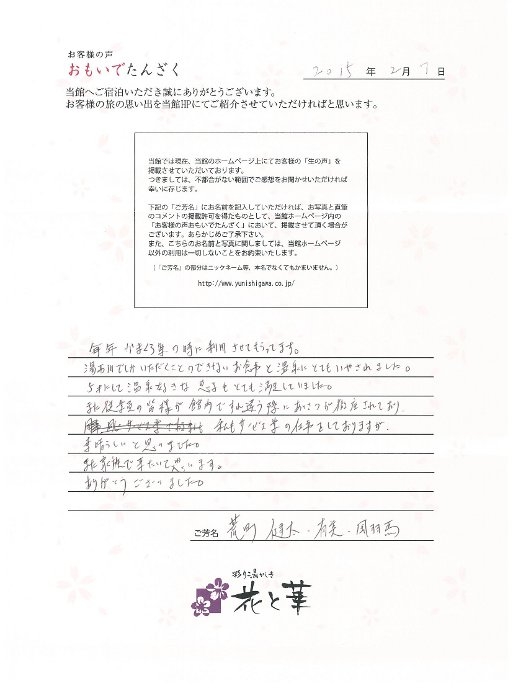 お客様の声
おもいでたんざく
2015 年 2月 1 日
当館へご宿泊いただき誠にありがとうございます。
お客様の旅の思い出を当館HPにてご紹介させていただければと思います。
当館では現在、当館のホームページ上にてお客様の「生の声」を
掲載させていただいております。
つきましては、不都合がない範囲でご感想をお聞かせいただければ
幸いに存じます。
下記の「ご芳名」にお名前を記入していただければ、お写真と直筆
のコメントの掲載許可を得たものとして、当館ホームページ内の
「お客様の声おもいでたんざく」において、掲載させて頂く場合が
ございます。あらかじめご了承下さい。
また、こちらのお名前と写真に関しましては、当館ホームページ
以外の利用は一切しないことをお約束いたします。
(「ご芳名」の部分はニックネーム等、本名でなくてもかまいません。)
http://www.yunishigawa.co.jp/
毎年 かまくら祭の時に利用させてもらってます。
湯西川でしかいただくことのできないお食事と温泉にとてもいやされました。
5才にして温泉好きな 息子もとても満足していました。
また従業員の皆様が館内ですれ違う際にあいさつが徹底されており
私もサービス業の仕事をしておりますが、
素晴らしいと思いました。
また家族で来たいと思います。
ありがとうございました。
ご芳名 荒町 健太・有美・
彩り湯かしき
花と華